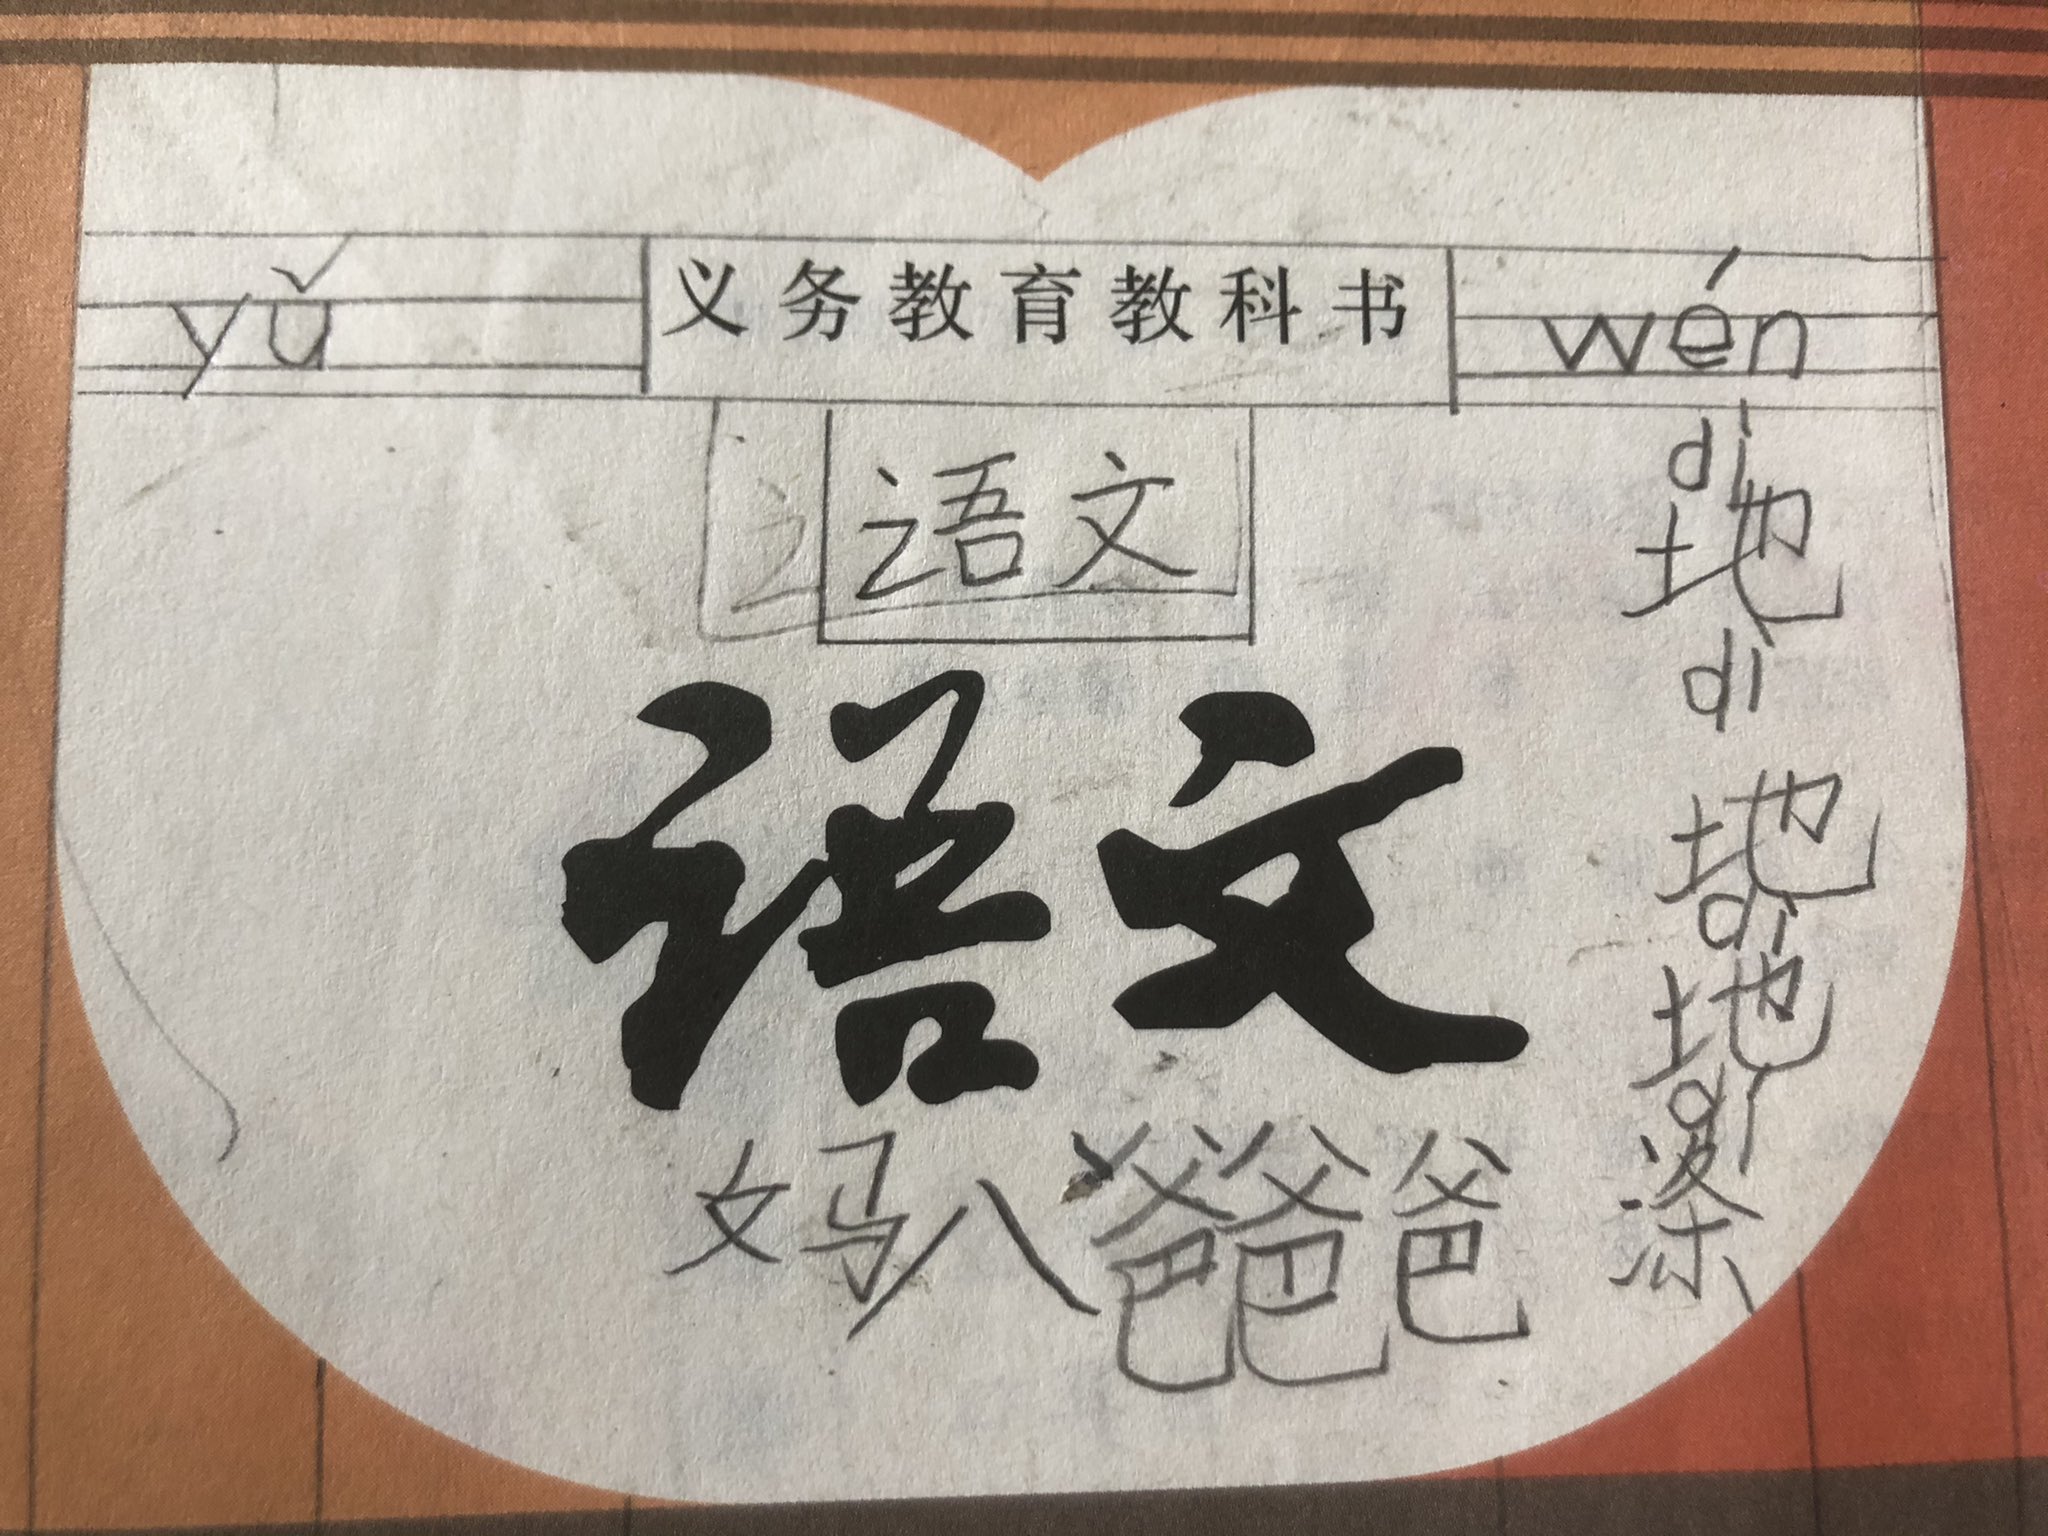 yǔ 义务教育教科书 wén
语文
dì
地
dì
语文
地
dì
地
dì
涤
文 马 八 爸 爸 爸